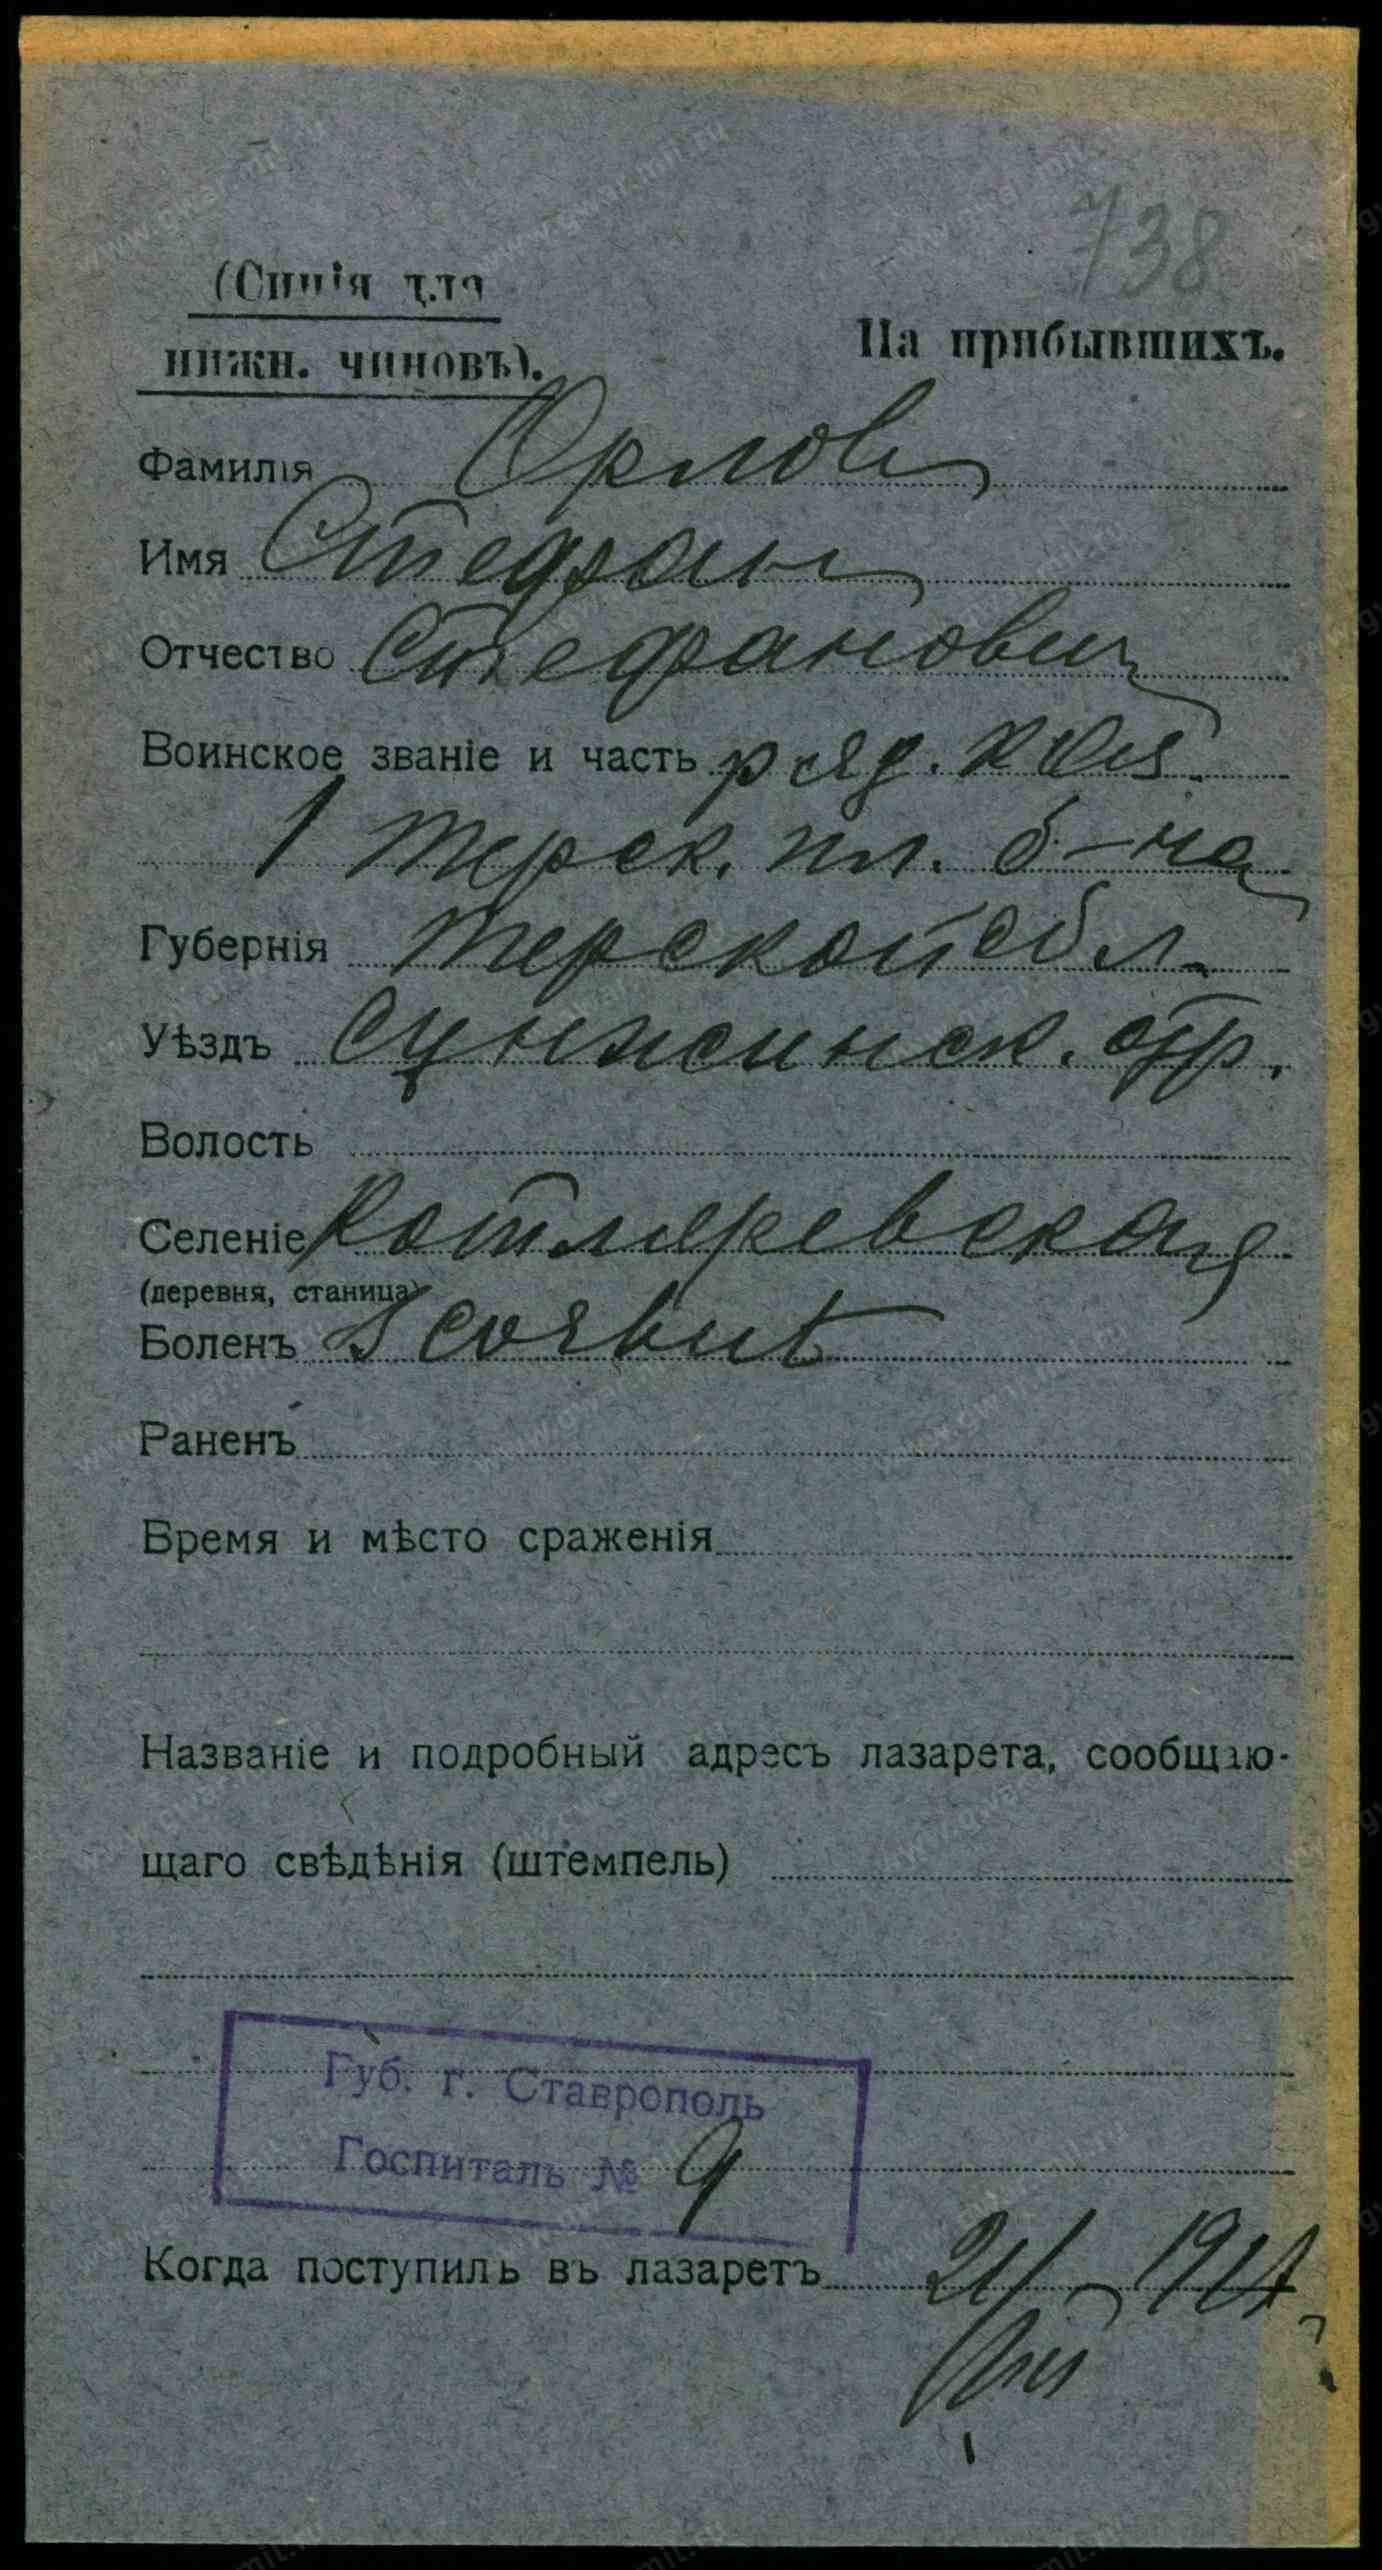 738
(Синія для
нижн. чиновъ).
На прибывшихъ.
Фамилія Орловъ
Имя Стефанъ
Отчество Стефанович
Воинское званіе и часть ряд. каз.
1 терск. пл. б-на
Губернія терской обл.
Уѣздъ сунженск. отр.
Волость
Селеніе Котляревская
(деревня, станица)
Боленъ Scorbut
Раненъ
Время и мѣсто сраженія
Названіе и подробный адресъ лазарета, сообщаю-
щаго свѣдѣнія (штемпель)
Губ. г. Ставрополь
Госпиталь № 9
Когда поступилъ въ лазаретъ 21/ 191